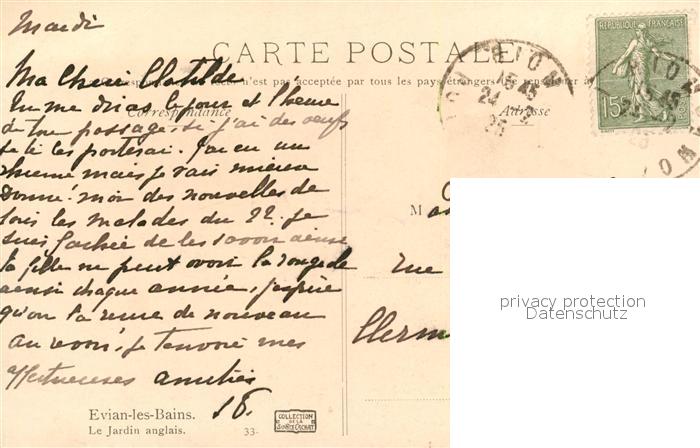 Mardi
CARTE POSTALE
Ma chère Clotilde
Correspondance
n'est pas acceptée par tous les pays étrangers
Adresse
Tu me diras le jour et l'heure
de ton passage, si j'ai des œufs
je te les porterai. J'ai eu un
rhume mais je vais mieux
Donne moi des nouvelles de
tous les malades du 22. Je
suis fachée de les savoir ainsi
la fille ne peut avoir la rougeole
ainsi chaque année, j'espère
qu'on l'a
de nouveau
au revoir, je t'envoie mes
affectueuses amitiés
M
rue
Clerm
REPUBLIQUE FRANÇAISE
15
RIOM
24
Evian-les-Bains.
Le Jardin anglais.
33.
COLLECTION
DE LA
SOURCE CACHAT
privacy protection
Datenschutz